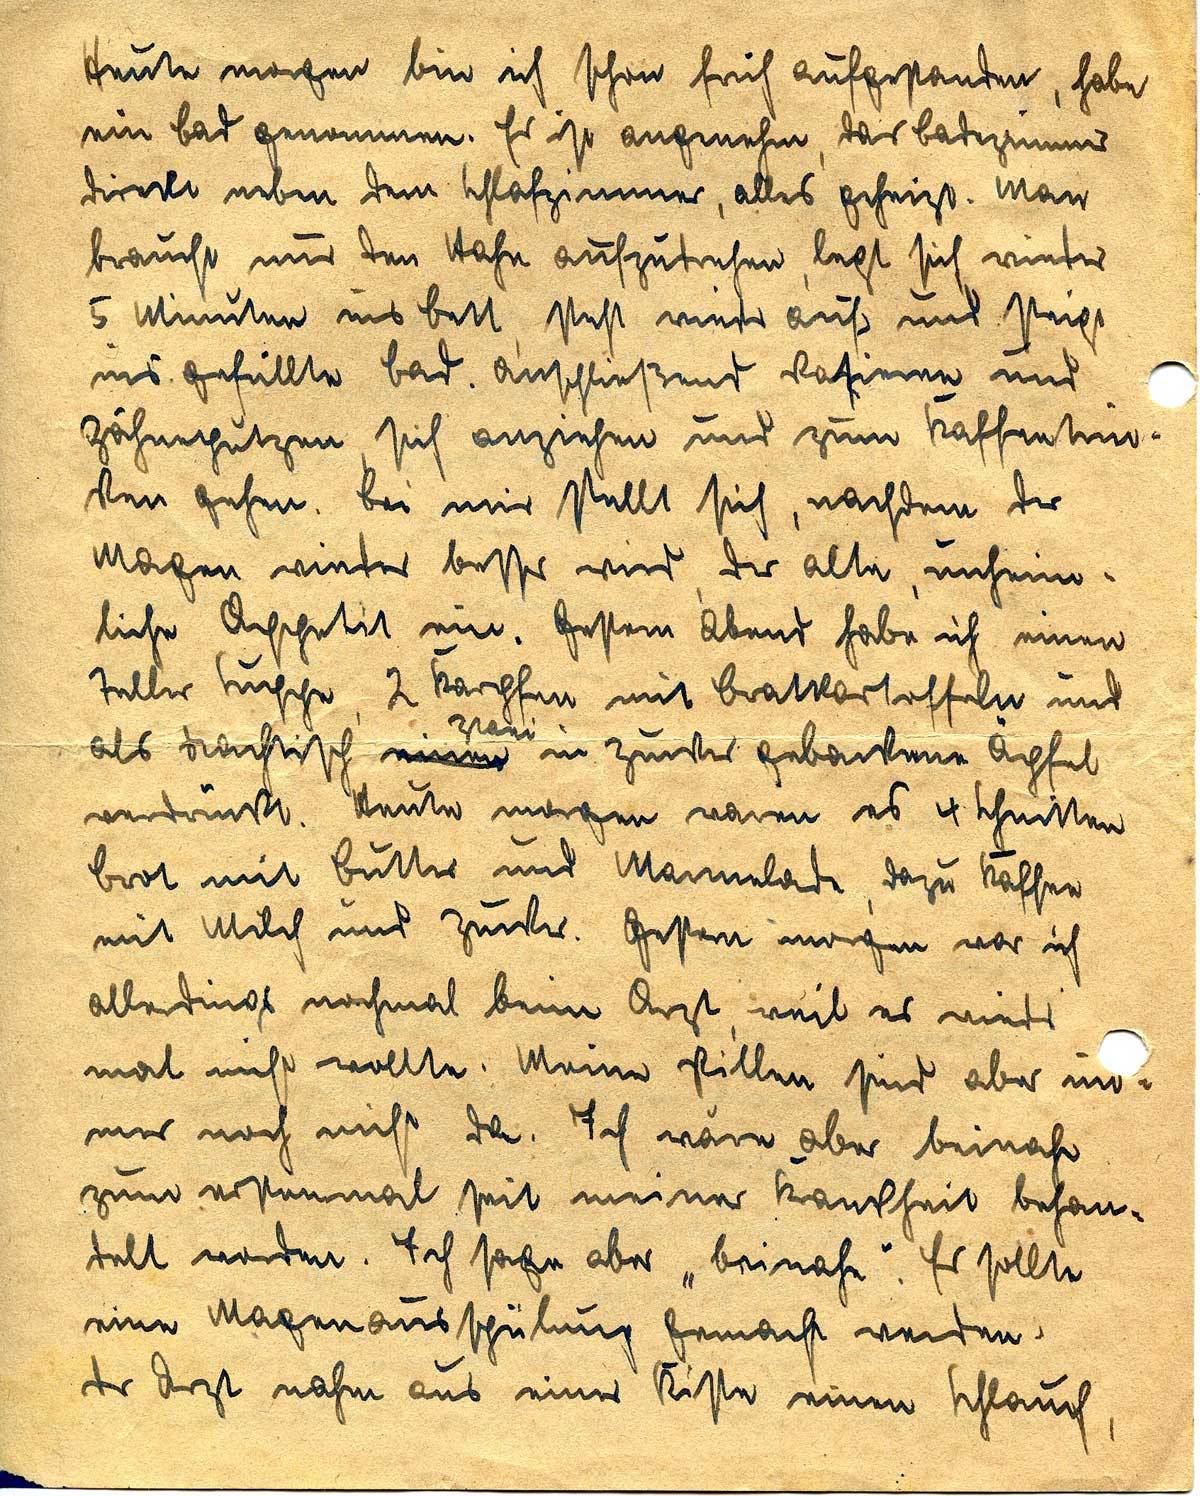 Heute morgen bin ich schon früh aufgestanden, habe
ein Bad genommen. Es ist angenehm, das Badezimmer
direkt neben dem Schlafzimmer, alles geheizt. Man
braucht nur den Hahn aufzudrehen, legt sich wieder
5 Minuten ins Bett, steht wieder auf und steigt
ins gefüllte Bad. Anschließend Rasieren und
Zähneputzen, sich anziehen und zum Kaffeetrin-
ken gehen. Bei mir stellt sich, nachdem der
Magen wieder besser wird, der alte, unheim-
liche Appetit ein. Gestern Abend habe ich einen
Teller Suppe, 2 Karpfen mit Bratkartoffeln und
als Nachtisch einen zwei in Zucker gebackene Äpfel
verdrückt. Heute morgen waren es 4 Schnitten
Brot mit Butter und Marmelade, dazu Kaffee
mit Milch und Zucker. Gestern morgen war ich
allerdings nochmal beim Arzt, weil es wieder
mal nicht wollte. Meine Pillen sind aber im-
mer noch nicht da. Ich wäre aber beinahe
zum erstenmal seit meiner Krankheit behan-
delt worden. Ich sage aber „beinahe“. Es sollte
eine Magenausspülung gemacht werden.
der Arzt nahm aus einer Kiste einen Schlauch,